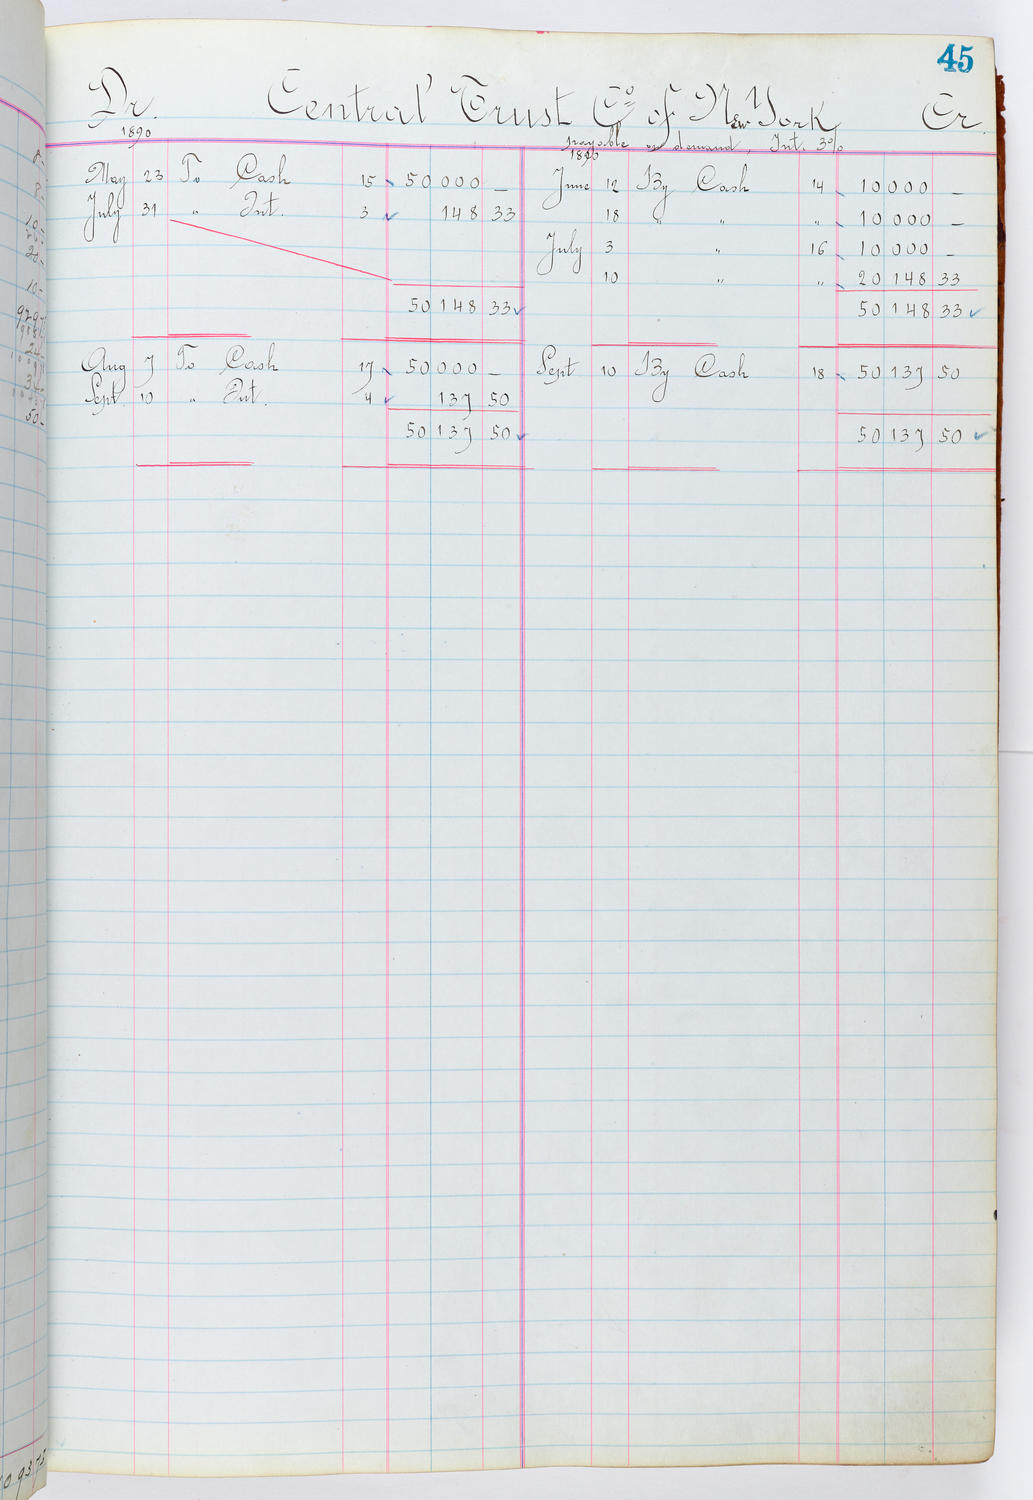 45
Dr. Central Trust Co of New York Cr.
payable on demand, Int. 3%
1890 1890
May 23 To Cash 15 50 000 — June 12 By Cash 14 10 000 —
July 31 " Int. 3 148 33 18 " " " 10 000 —
July 3 " 16 10 000 —
10 " " 20 148 33
50 148 33 50 148 33
Aug 7 To Cash 17 50 000 — Sept 10 By Cash 18 50 137 50
Sept 10 " Int. 4 137 50
50 137 50 50 137 50